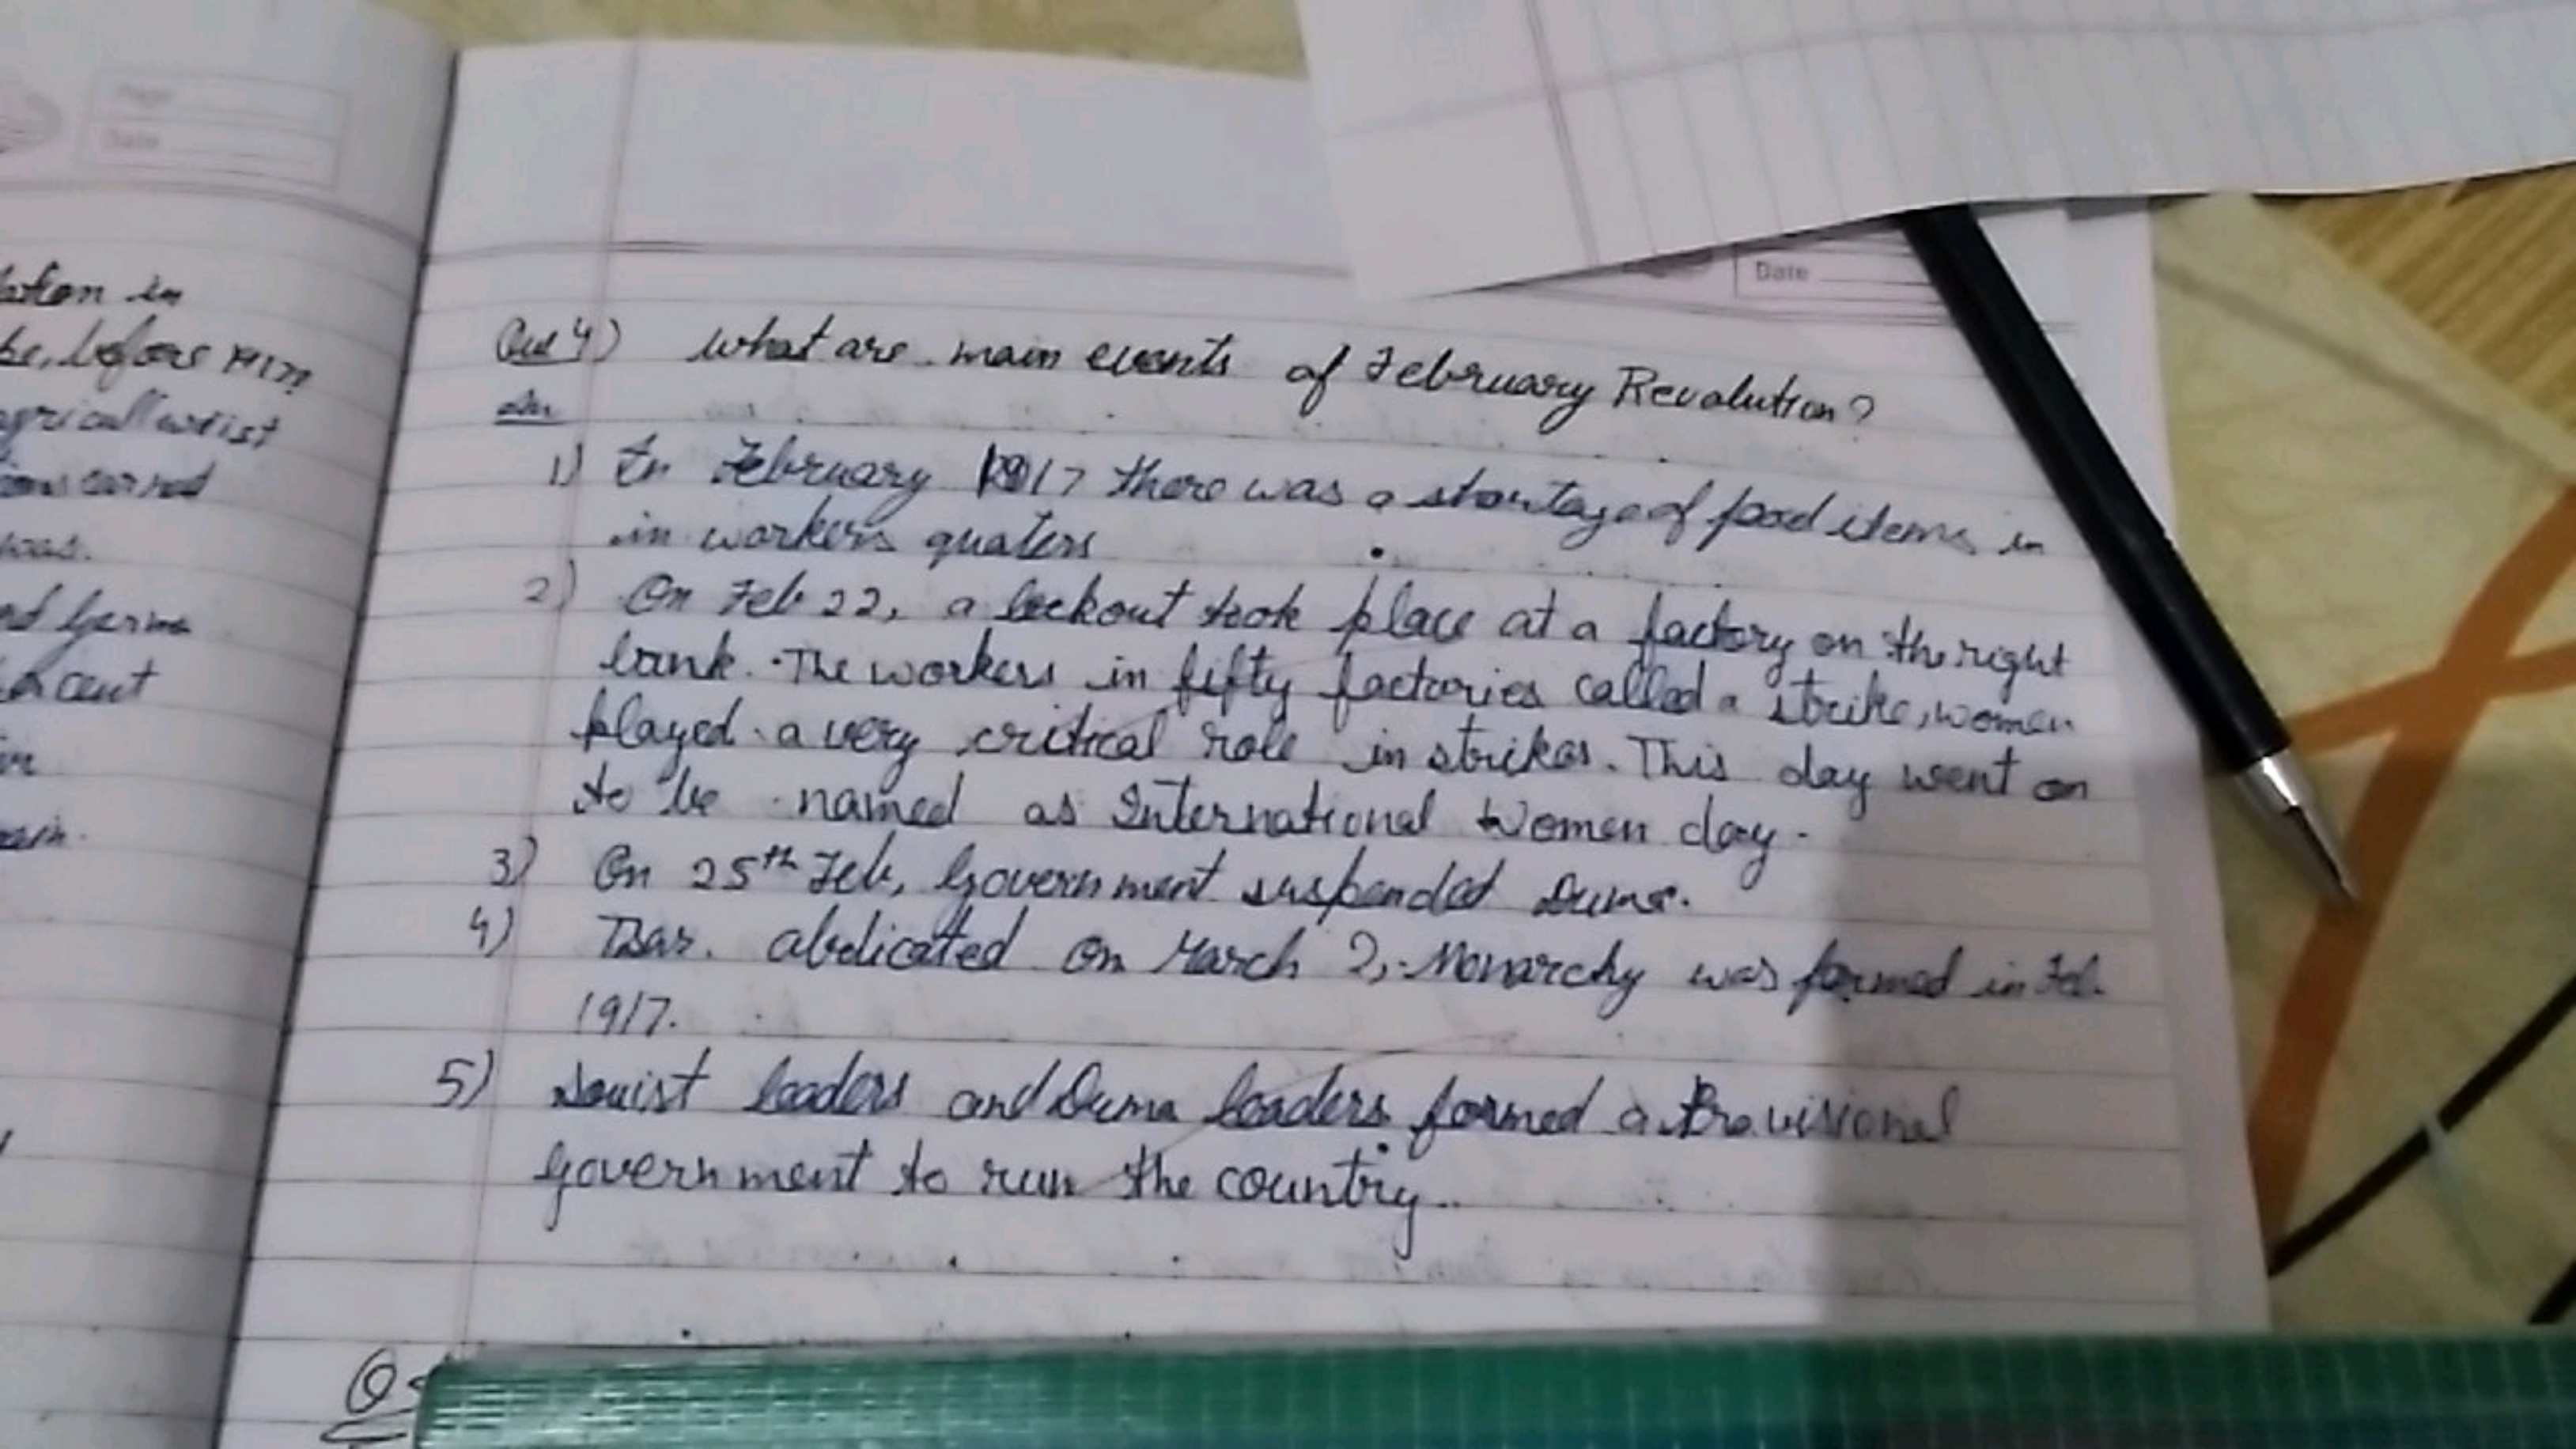 Page
Date
Date
in
before
was.
cent
Que 4) what are main events of February Revolution?
Ans
1) In February 1917 there was a shortage of food items in
in workers quaters
2) On Feb 22, a lockout took place at a factory on the right
bank. The workers in fifty factories called a strike, women
played a very critical role in strikes. This day went on
to be named as International Women day.
3) On 25th Feb, Government suspended Duma.
4) Tsar. abdicated on March 2, Monarchy was formed in Feb.
1917.
5) Souist leaders and Duma leaders formed a Provisional
government to run the country.
Q